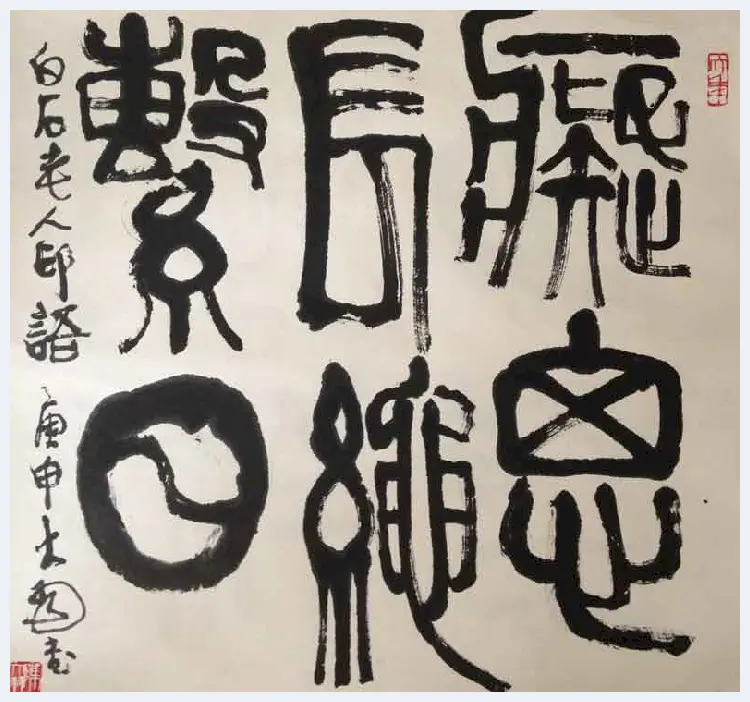 癡思
長繩
繫日
白石老人印語 庚申大